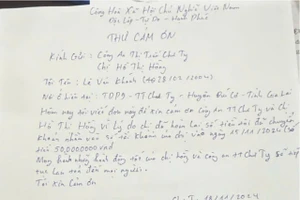 Cộng Hoà Xã Hội Chủ Nghĩa Việt Nam
Độc Lập - Tự Do - Hạnh Phúc
THƯ CẢM ƠN
Kính Gửi: Công An Thị Trấn Chư Ty
Chị Hồ Thị Hồng
Tôi Tên: Lê Văn Khánh
Nơi ở hiện tại: TDP9 - TT Chư Ty - Huyện Đức Cơ - Tỉnh Gia Lai
Hôm nay tôi viết đơn này để xin cảm ơn công an TT Chư Ty và Chị
Hồ Thị Hồng vì lý do chị đã hoàn lại số tiền tôi đã chuyển
khoản nhầm vào số tài khoản của chị vào ngày 15/11/2024 (số
50,000,000 vnđ
hành động của chị Hồng và công an TT Chư Ty sẽ
lan toả đến mọi người.
Tôi xin cảm ơn